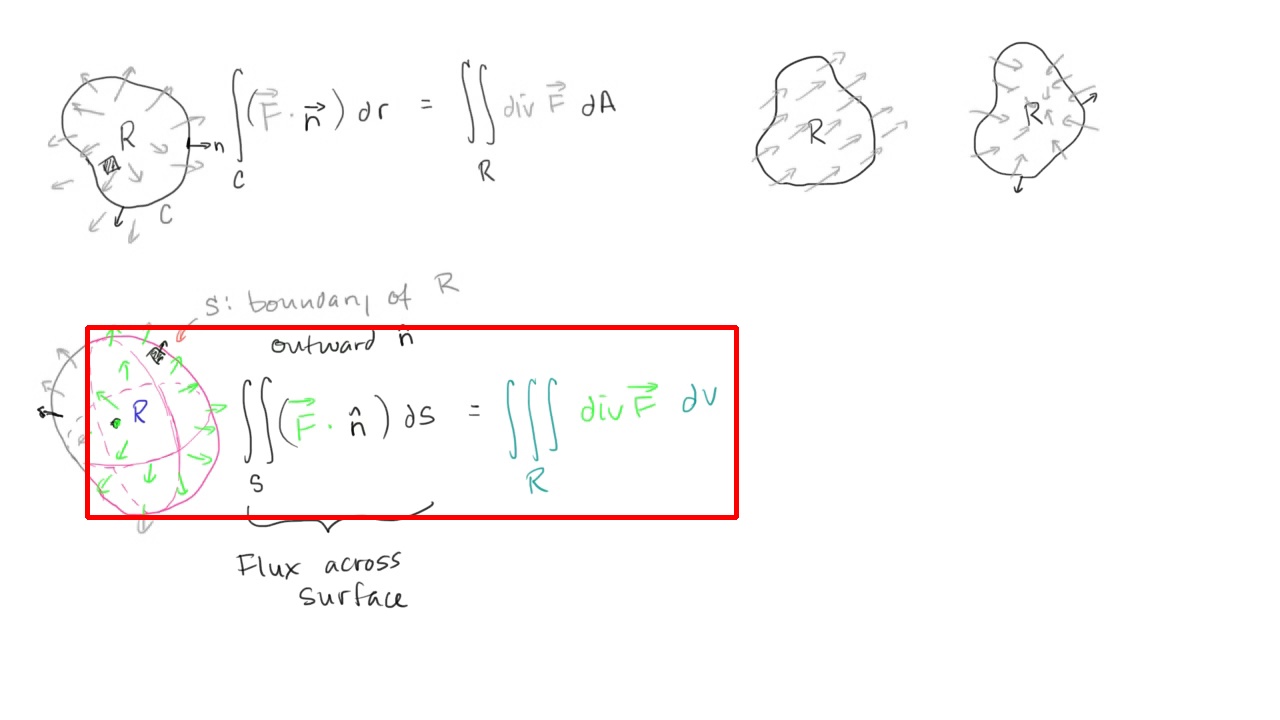 R
n
C
∫ (F⃗ · n⃗) dr = ∬ div F⃗ dA
C
R
R
R
S: boundary of R
outward n̂
R
∬ (F⃗ · n̂) ds = ∭ div F⃗ dv
S
R
Flux across
surface